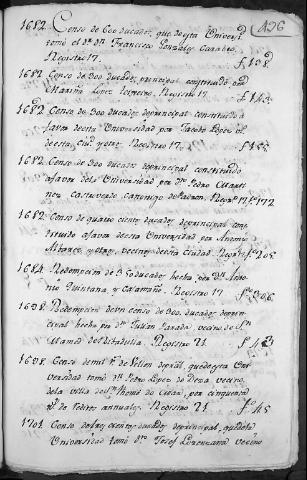 436
1682 Censo de 600 ducados, que de esta Universd
tomó el Dr. Dn. Francisco Gonzalez
Registro 17. fº 138.
1682 Censo de 300 ducados, principal, constituido por
Mariño Lopez Registro 17. fº 143
1682 Censo de 300 ducados de principal constituido á
favor de esta Universidad por Jacobo Lopez vº
de esta Ciud. y otros Registro 17. fº 155
1682 Censo de 300 ducados de principal constituido
á favor de la Universidad por Dn. Pedro Marti
nez Castroverde Canonigo de Padron. Regrº 17. fº 172
1682 Censo de quatrocientos ducados de principal cons
tituido á favor de esta Universidad por Antonio
y otros, vecinos de esta Ciudad. Regrº 17. fº 205
1684 Redempcion de ducados hecha por Dn. Anto
nio Quintana, y Caamaño. Registro 17. fº 306.
1698 Redempcion de un censo de 200. ducados de prin
cipal hecho por Dn. Julian Parada vecino de Sn.
Mamed de Ribadulla. Registro 21. fº 43
1698 Censo de mil rs. de Vellon de pral, que de esta Uni
versidad tomó Dn. Pedro Lopez de Deza vecino
de la villa de Sn. Thomé de por cinquenta
rs. de reditos annuales. Registro 21. fº 45
1701 Censo de trescientos ducados de principal, que de esta
Universidad tomó Dn. Josef Lorenzana vecino